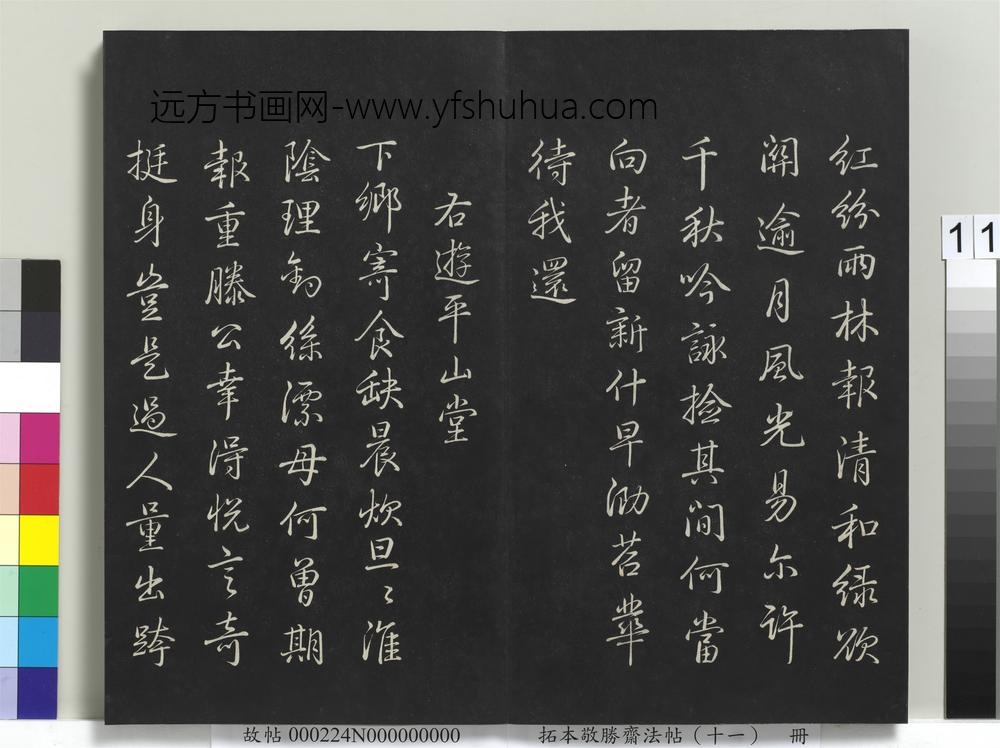 远方书画网-www.yfshuhua.com
红紛雨林報清和绿欲
關逾月風光易尔許
千秋吟詠撿其間何當
向者留新什早泐苕華
待我還
右遊平山堂
下鄉寄食缺晨炊旦〻淮
陰理釣絲漂母何曾期
報重滕公幸得悅言奇
挺身豈是過人量出跨
11
故帖 000224N000000000
拓本敬勝齋法帖（十一） 冊